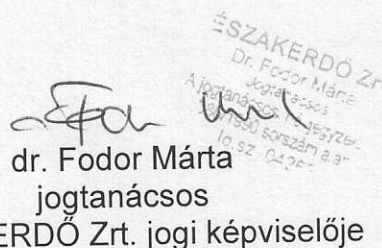 ÉSZAKERDŐ Zrt
Dr. Fodor Márta
Jogtanácsos
A jogtanácsos
dr. Fodor Márta
jogtanácsos
ERDŐ Zrt. jogi képviselője